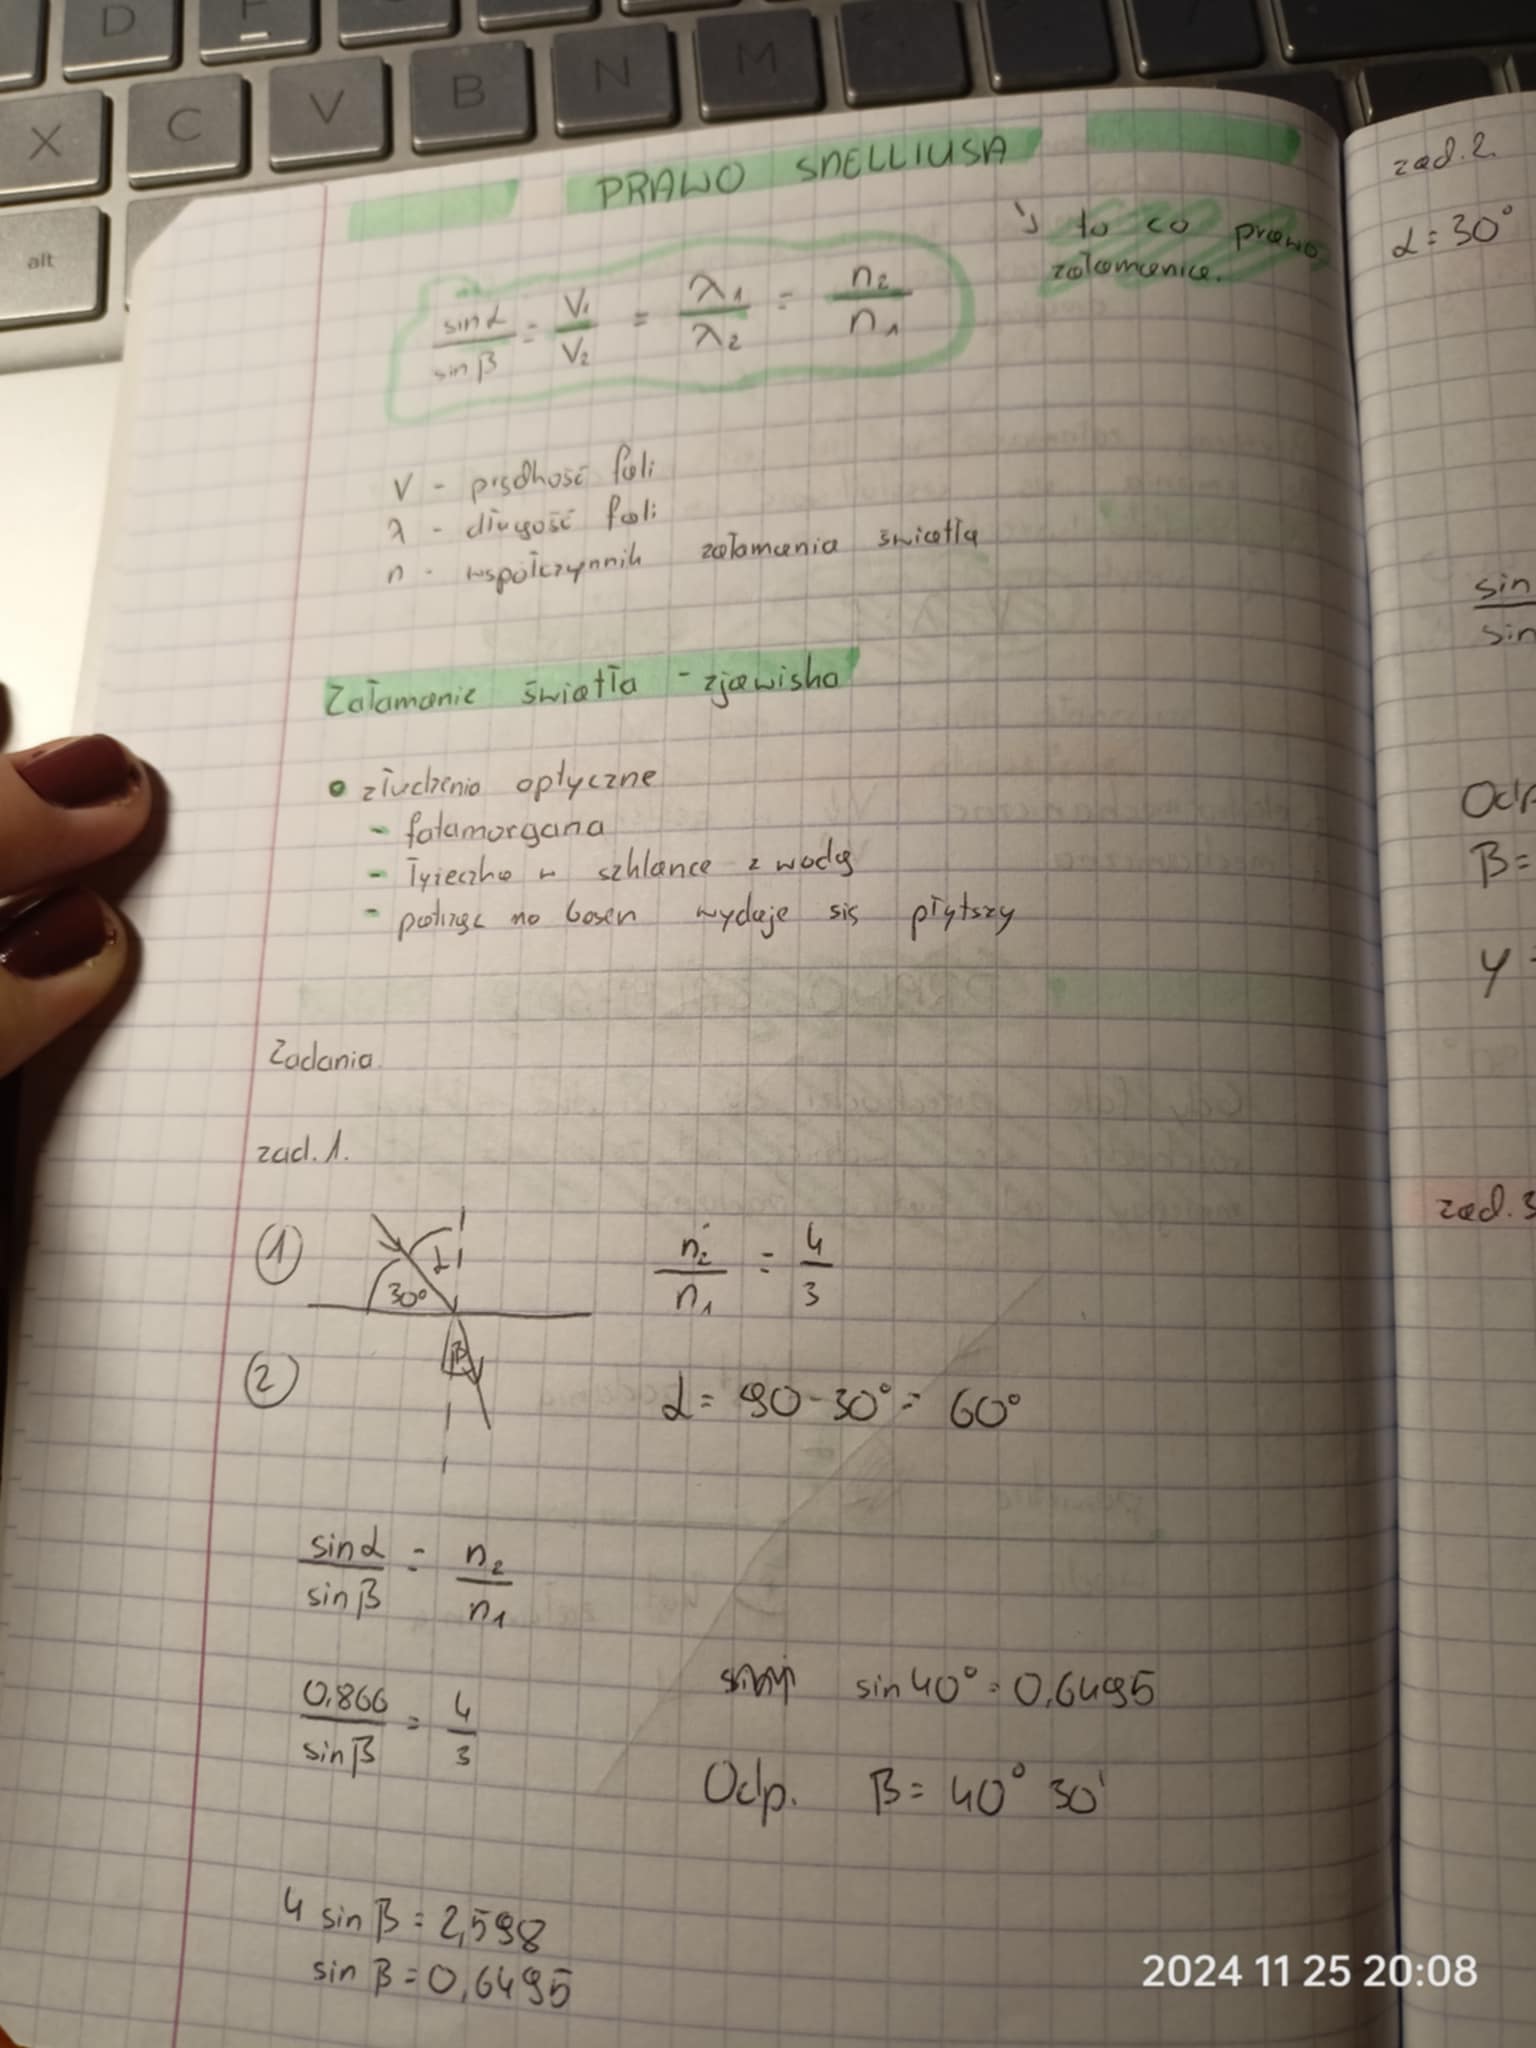 D F
X C V B N M
alt
PRAWO SNELLIUSA
↳ to co prawo
załamania.
sinα/sinβ = V₁/V₂ = λ₁/λ₂ = n₂/n₁
V - prędkość fali
λ - długość fali
n - współczynnik załamania światła
Załamanie światła - zjawisko
• złudzenia optyczne
- fatamorgana
- łyżeczka w szklance z wodą
- patrząc na basen wydaje się płytszy
Zadania.
zad. 1.
① α
30°
n₂/n₁ = 4/3
② β
α = 90 - 30° = 60°
sinα/sinβ = n₂/n₁
0,866/sinβ = 4/3
sin 40° = 0,6495
Odp. β = 40° 30'
4 sin β = 2,598
sin β = 0,6495
zad. 2.
α = 30°
sin
sin
Odp
β =
γ =
zad. 3
2024 11 25 20:08